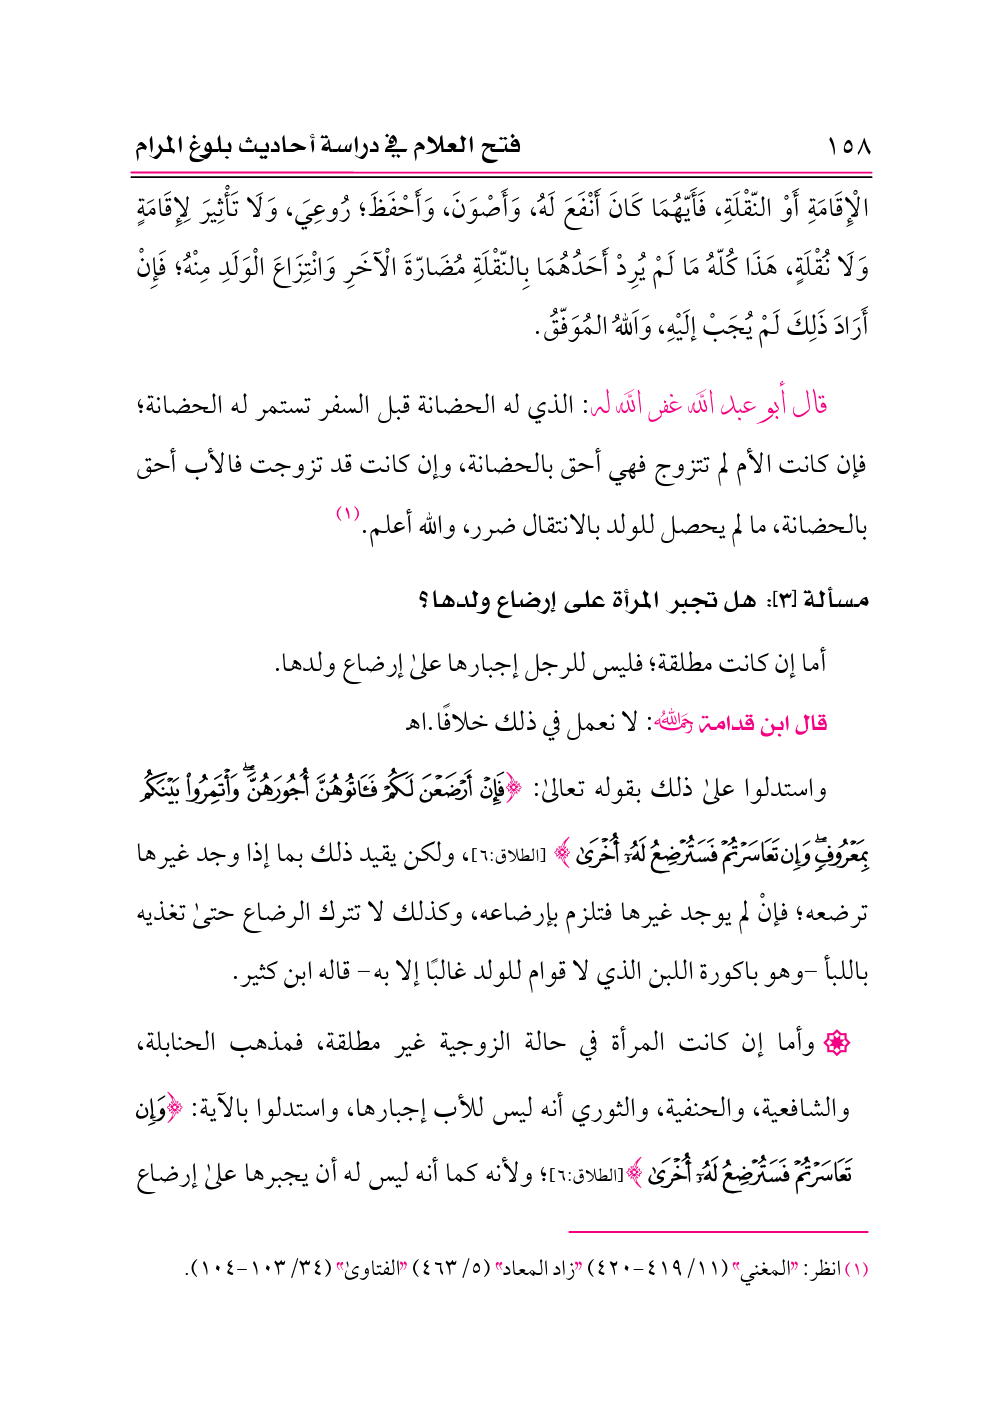 ١٥٨ فتح العلام في دراسة أحاديث بلوغ المرام
الْإِقَامَةِ أَوْ النّقْلَةِ، فَأَيّهُمَا كَانَ أَنْفَعَ لَهُ، وَأَصْوَنَ، وَأَحْفَظَ؛ رُوعِيَ، وَلَا تَأْثِيرَ لِإِقَامَةٍ
وَلَا نُقْلَةٍ، هَذَا كُلّهُ مَا لَمْ يُرِدْ أَحَدُهُمَا بِالنّقْلَةِ مُضَارّةَ الْآخَرِ وَانْتِزَاعَ الْوَلَدِ مِنْهُ؛ فَإِنْ
أَرَادَ ذَلِكَ لَمْ يُجَبْ إلَيْهِ، وَاَللهُ المُوَفّقُ.
قال أبو عبد الله غفر الله له: الذي له الحضانة قبل السفر تستمر له الحضانة؛
فإن كانت الأم لم تتزوج فهي أحق بالحضانة، وإن كانت قد تزوجت فالأب أحق
بالحضانة، ما لم يحصل للولد بالانتقال ضرر، والله أعلم.(١)
مسألة [٣]: هل تجبر المرأة على إرضاع ولدها؟
أما إن كانت مطلقة؛ فليس للرجل إجبارها علىٰ إرضاع ولدها.
قال ابن قدامة رحمه الله: لا نعمل في ذلك خلافًا.اهـ
واستدلوا علىٰ ذلك بقوله تعالىٰ: ﴿فَإِنْ أَرْضَعْنَ لَكُمْ فَـَٔاتُوهُنَّ أُجُورَهُنَّ ۖ وَأْتَمِرُوا۟ بَيْنَكُم
بِمَعْرُوفٍ ۖ وَإِن تَعَاسَرْتُمْ فَسَتُرْضِعُ لَهُۥٓ أُخْرَىٰ﴾ [الطلاق:٦]، ولكن يقيد ذلك بما إذا وجد غيرها
ترضعه؛ فإنْ لم يوجد غيرها فتلزم بإرضاعه، وكذلك لا تترك الرضاع حتىٰ تغذيه
باللبأ -وهو باكورة اللبن الذي لا قوام للولد غالبًا إلا به- قاله ابن كثير.
وأما إن كانت المرأة في حالة الزوجية غير مطلقة، فمذهب الحنابلة،
والشافعية، والحنفية، والثوري أنه ليس للأب إجبارها، واستدلوا بالآية: ﴿وَإِن
تَعَاسَرْتُمْ فَسَتُرْضِعُ لَهُۥٓ أُخْرَىٰ﴾ [الطلاق:٦]؛ ولأنه كما أنه ليس له أن يجبرها علىٰ إرضاع
(١) انظر: "المغني" (١١/ ٤١٩-٤٢٠) "زاد المعاد" (٥/ ٤٦٣) "الفتاوىٰ" (٣٤/ ١٠٣-١٠٤).